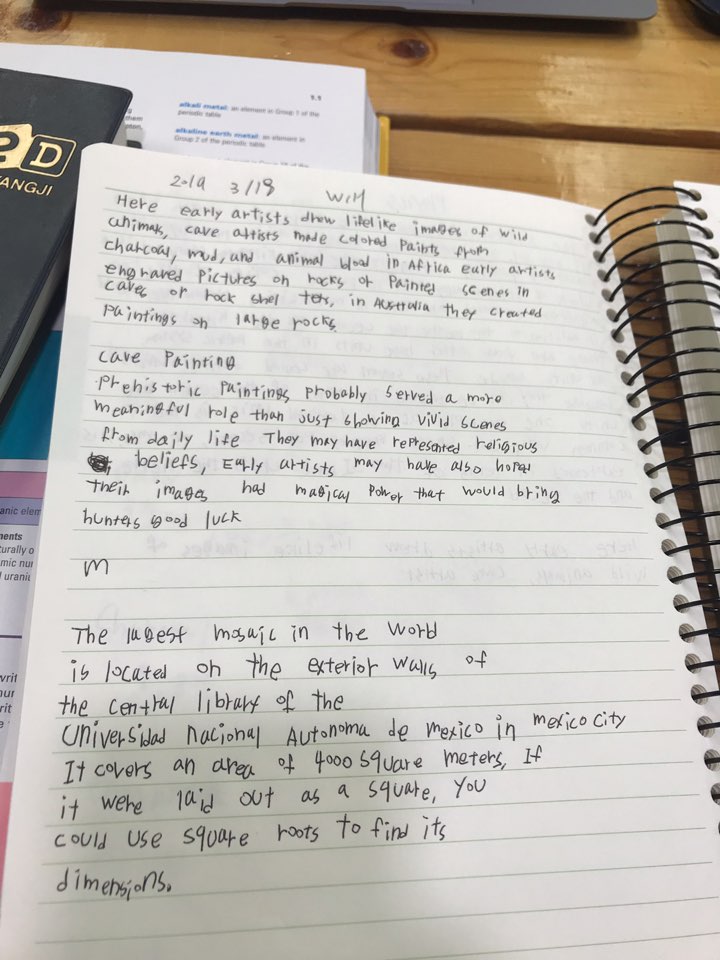 PD
ANGJI
1.1
alkali metal: an element in Group 1 of the
periodic table
alkaline earth metal: an element in
Group 2 of the periodic table
2019 3/18 W/H
Here early artists drew lifelike images of wild
animals, cave artists made colored paints from
charcoal, mud, and animal blood in Africa early artists
engraved pictures on rocks or painted scenes in
caves or rock shel ters, in Australia they created
paintings on large rocks
cave painting
prehistoric paintings probably served a more
meaningful role than just showing vivid scenes
from daily life They may have represented religious
beliefs, Early artists may have also hoped
their images had magical power that would bring
hunters good luck
m
The lagest mosaic in the world
is located on the exterior walls of
the central library of the
Universidad nacional Autonoma de mexico in mexico city
It covers an area of 4000 square meters, If
it were laid out as a square, you
could use square roots to find its
dimensions.